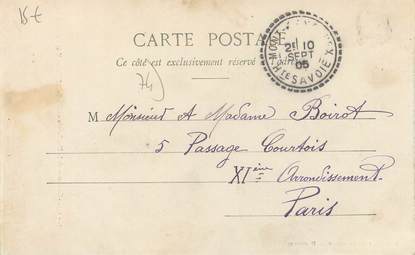 15€
CARTE POSTALE
Ce côté est exclusivement réservé
74)
2E 10
SEPT
05
Hte SAVOIE
M Monsieur et Madame Boirot
5 Passage Courtois
XIème Arrondissement
Paris